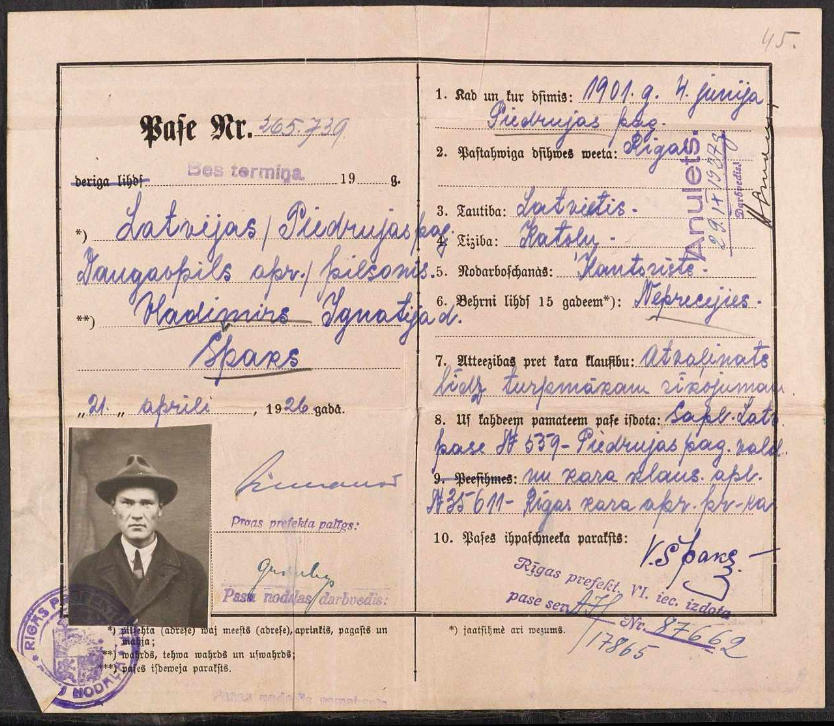 45.
Paſe Nr. 265.739
deriga lihdſ Bes termiņa. 19 g.
*) Latvijas / Piedrujas pag.
Daugavpils apr./ pilsonis.
**) Vladimirs Ignatija d.
Špaks
„21„ aprīlī , 1926 gadâ.
Rīgas prefekta palīgs:
Pasu nodaļas darbvedis:
*) pilſehta (adreſe) waj meeſts (adreſe), aprinķis, pagaſts un
mahja;
**) wahrds, tehwa wahrds un uſwahrds;
***) paſes iſdeweja parakſts.
RĪGAS NODAĻA
1. Kad un kur dſimis: 1901. g. 4. jūnija
Piedrujas pag.
2. Paſtahwiga dſihwes weeta: Rīgas
3. Tautiba: Latvietis -
4. Tiziba: Katoļu -
5. Nodarboſchanâs: Kantorists -
6. Behrni lihdſ 15 gadeem*): Neprecējies -
7. Atteezibas pret kara klauſibu: Atvaļināts
līdz turpmākam rīkojumam
8. Uſ kahdeem pamateem paſe iſdota: Sapl. Latv.
pase № 539 - Piedrujas pag. vald.
9. Peeſihmes: un kara klaus. apl.
№ 35611 - Rīgas kara apr. pr-ka
10. Paſes ihpaſchneeka parakſts: V. Špaks -
Rīgas prefekt. VI. iec. izdota
pase ser. Nr. 87662
/17865
*) jaatſihmē ari wezums.
Anulēts.
Darbvedis